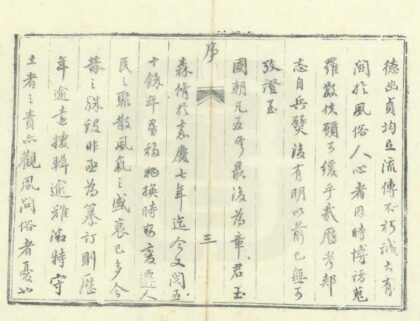 德幽貞均足流傳不朽誠大有
關於風俗人心者因時博訪蒐
羅散佚顧可緩乎哉歷考鄰
志自兵燹後有明以前已無可
攷證至
國朝凡五修最後為章君玉
森脩於嘉慶七年迄今又閱五
十餘年星移物換時變遷人
民之聚散風氣之盛衰已多今
昔之殊設非亟為纂訂則歷
年逾遠搜輯逾難滋特守
土者之責亦觀風問俗者憂也
序
三